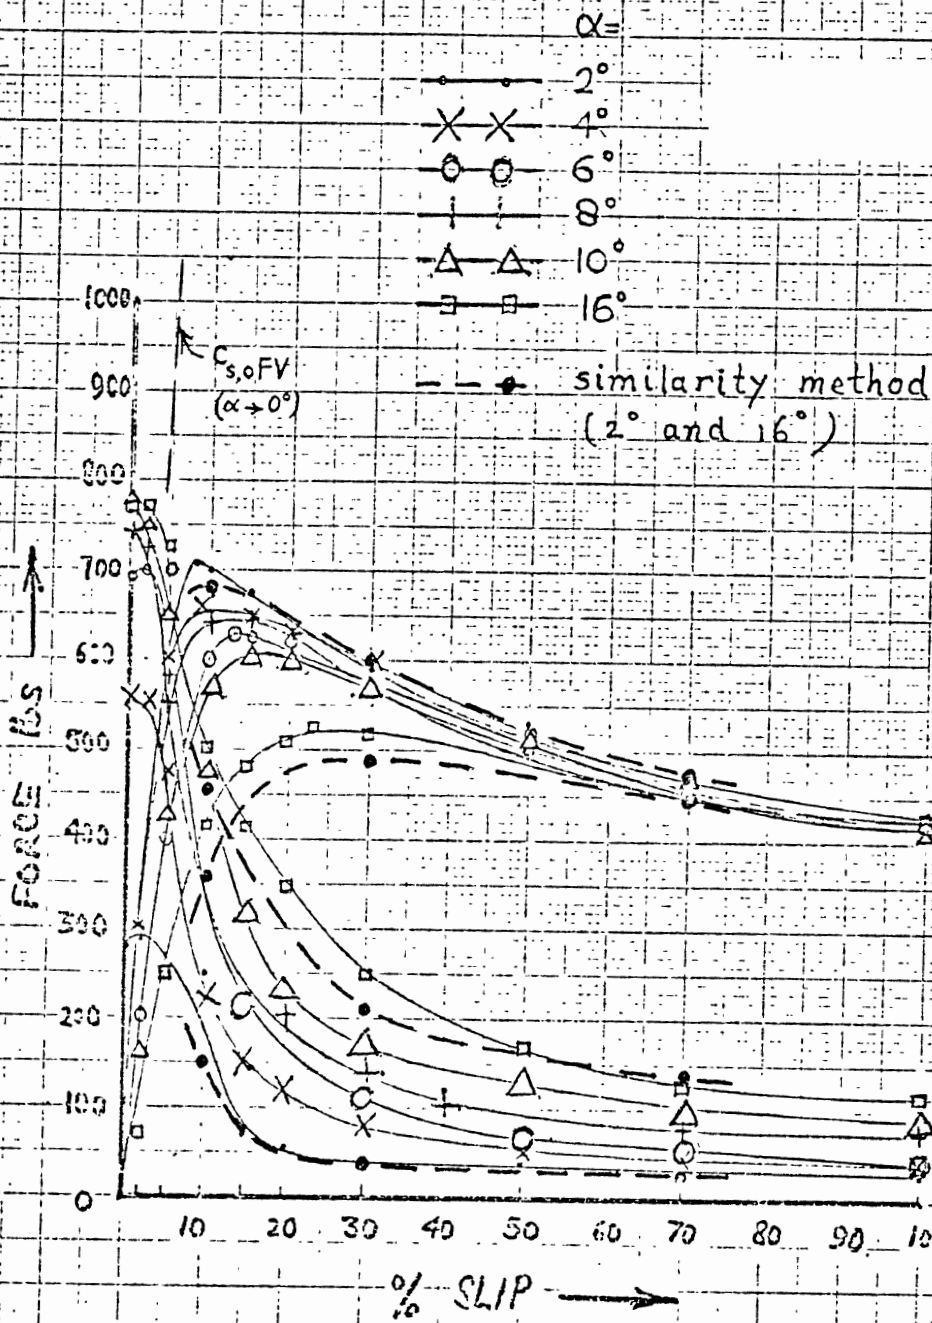 α=
2°
4°
6°
8°
10°
16°
similarity method
(2° and 16°)
C s,o FV
(α→0°)
1000
900
800
700
600
500
400
300
200
100
0
FORCE lbs
10 20 30 40 50 60 70 80 90 10
% SLIP